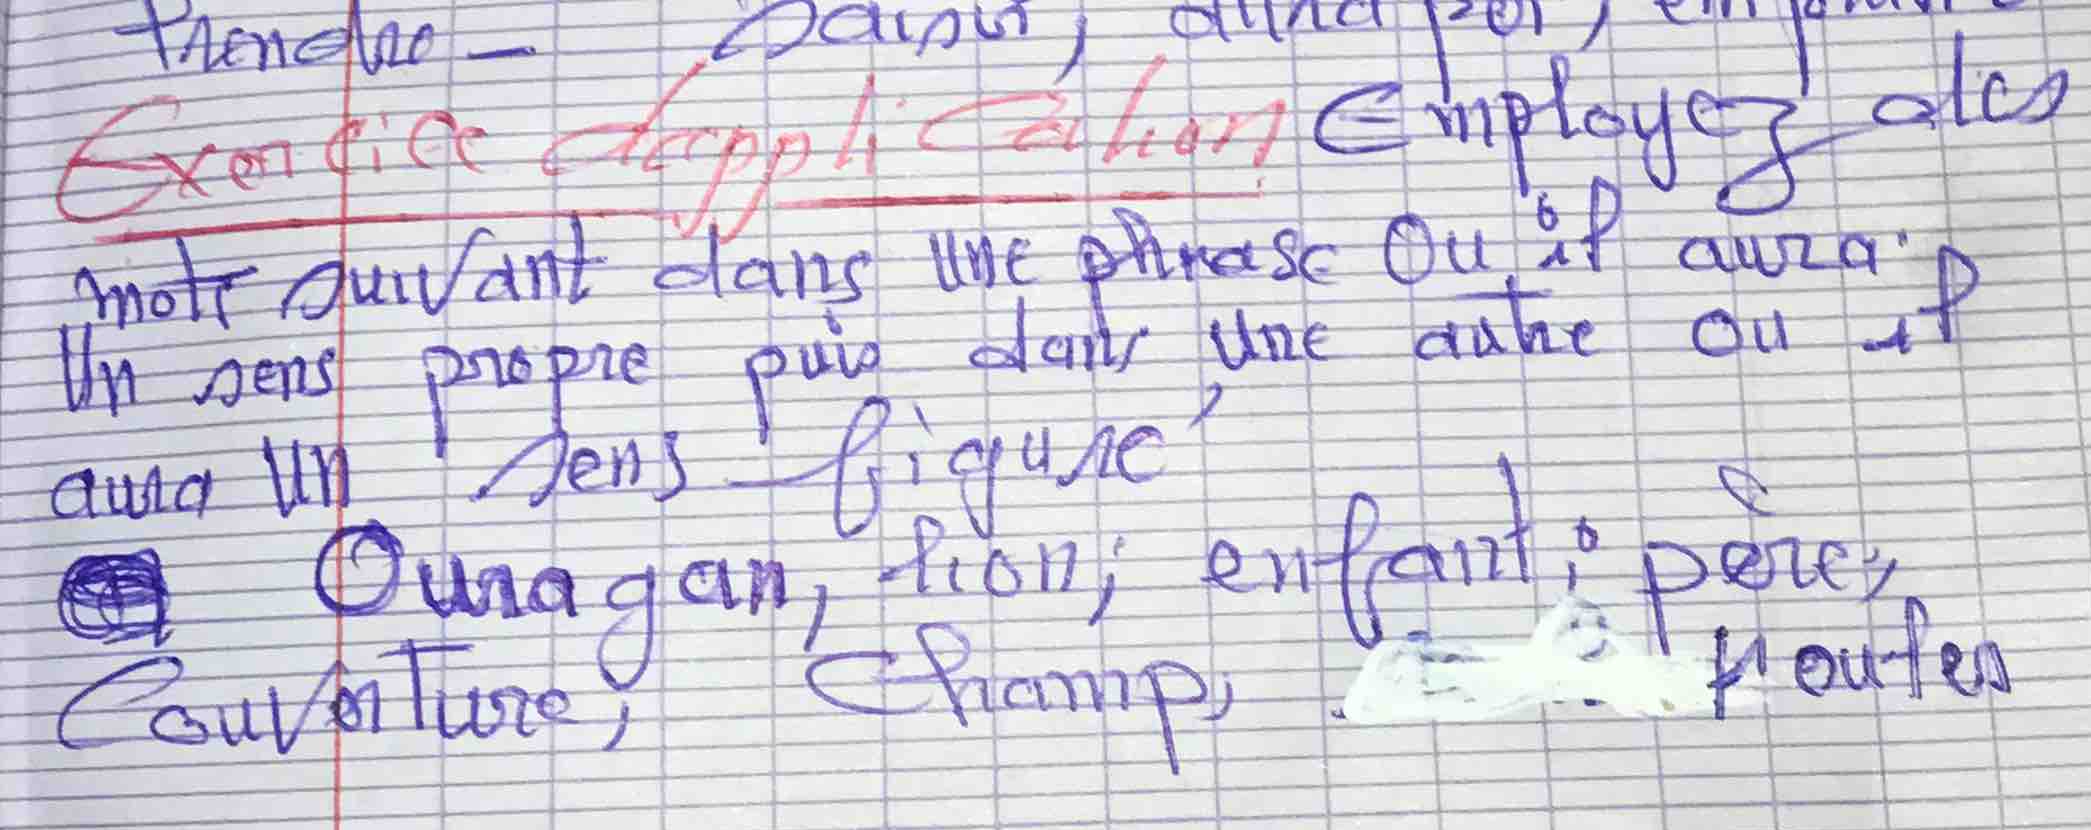 prendre - saisir, attraper,
Exercice d'application Employez des
mots suivant dans une phrase Ou il aura
Un sens propre puis dans une autre ou il
aura Un sens figuré
Ouragan, lion, enfant, père,
Couverture, Champ,